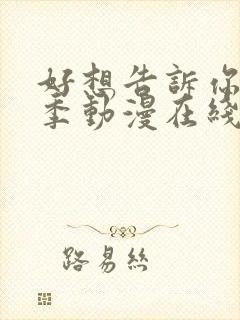 好想告訴你
季動漫在綫
路易絲